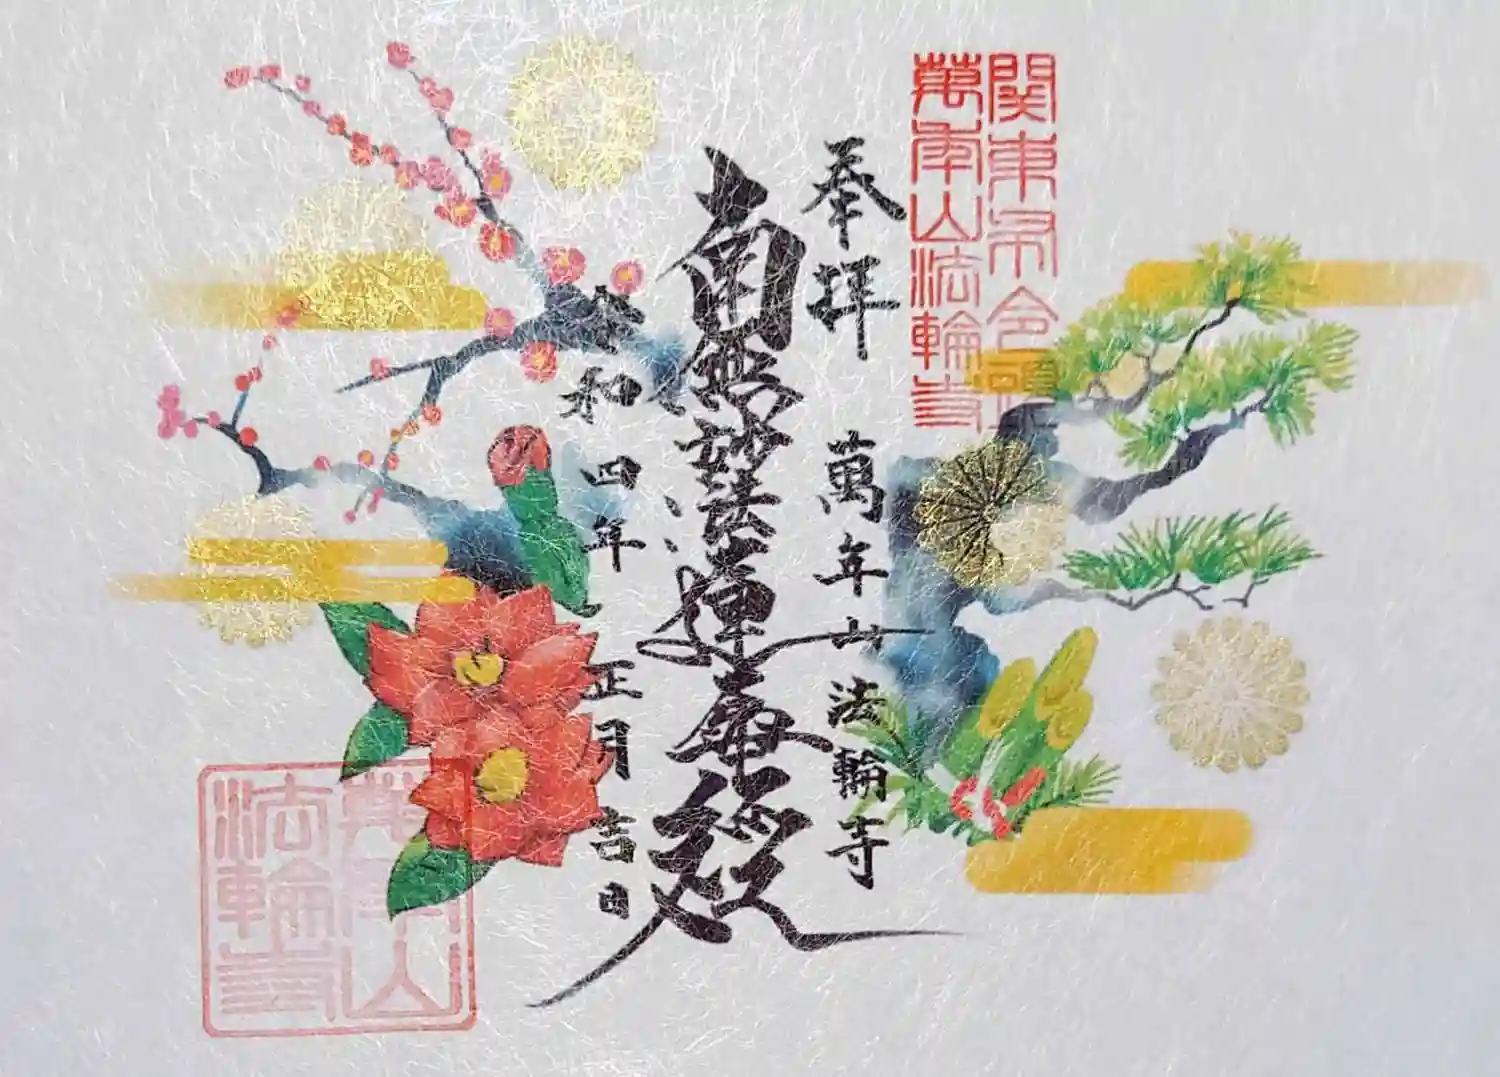 関東
萬年山法輪寺
奉拝 萬年山法輪寺
南無妙法蓮華経
令和四年 正月吉日
萬年山
法輪寺